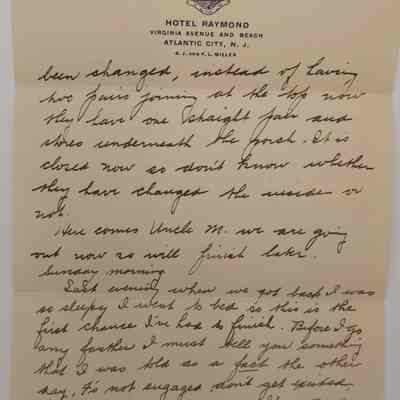 HOTEL RAYMOND
VIRGINIA AVENUE AND BEACH
ATLANTIC CITY, N. J.
been changed, instead of having
two pairs joining at the top now
they have one straight pair and
stores underneath the porch. It is
closed now so don't know whether
they have changed the inside or
not.
Here comes Uncle M. we are going
out now so will finish later.
Sunday morning
Last evening when we got back I was
so sleepy I went to bed so this is the
first chance I've had to finish. Before I go
any farther I must tell you something
that I was told as a fact the other
day, F's not engaged don't get excited